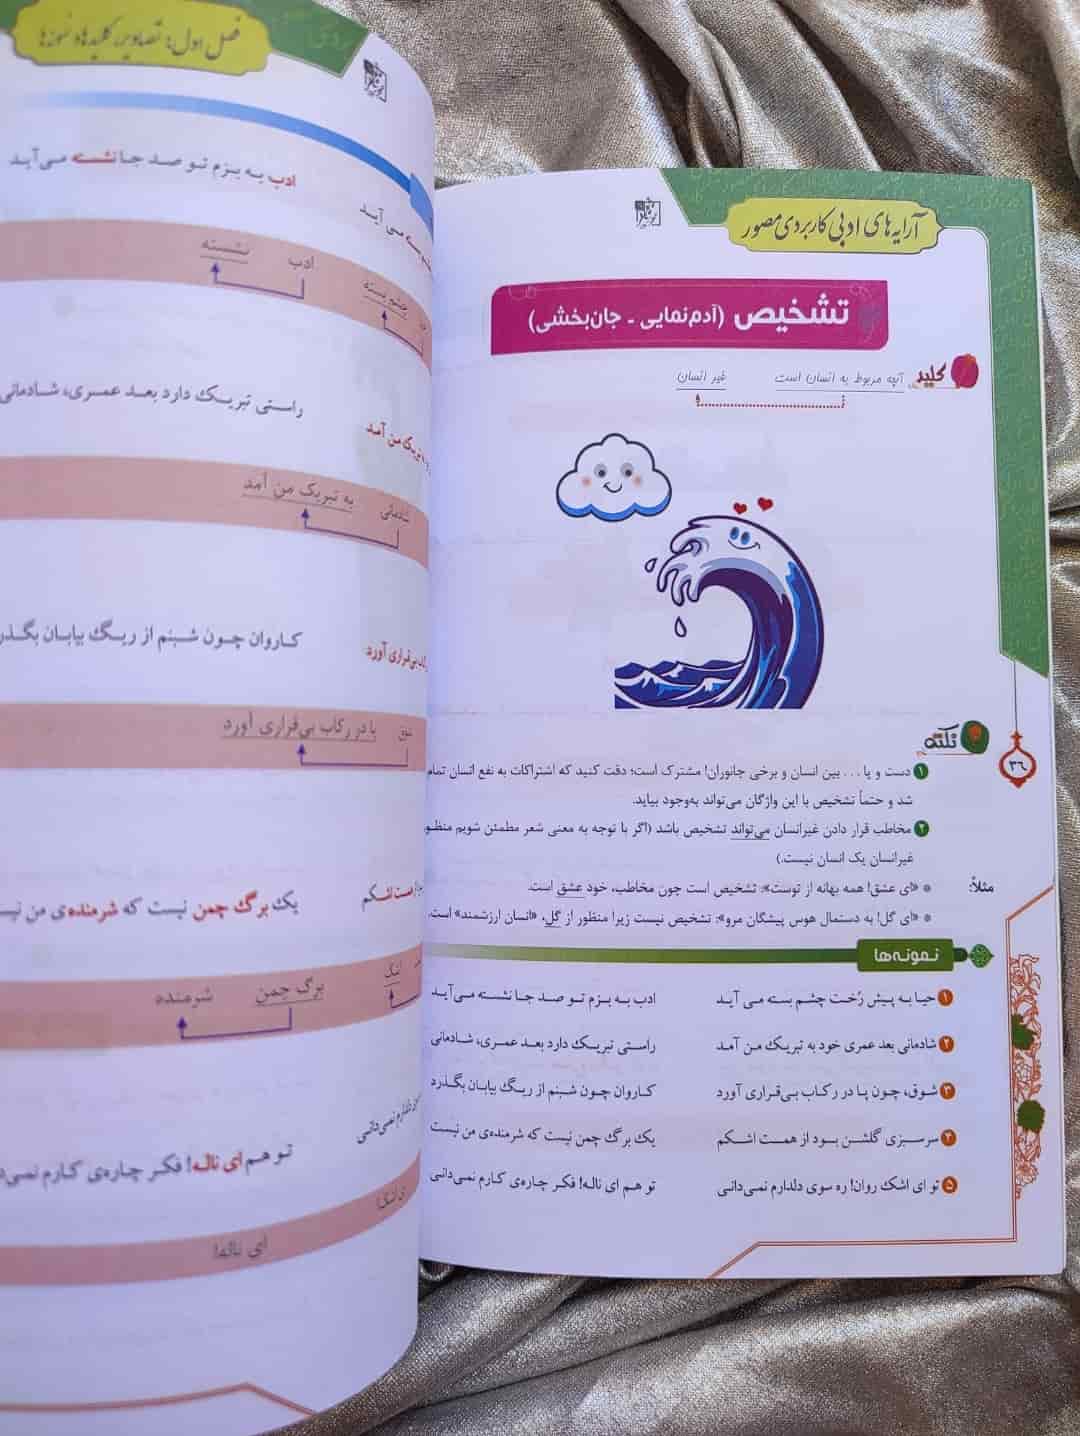 آرایه‌های ادبی کاربردی مصور
تشخیص (آدم‌نمایی - جان‌بخشی)
کلید
آنچه مربوط به انسان است غیر انسان
نکته
۳۶
۱ دست و پا ... بین انسان و برخی جانوران! مشترک است؛ دقت کنید که اشتراکات به نفع انسان تمام
شد و حتماً تشخیص با این واژگان می‌تواند به‌وجود بیاید.
۲ مخاطب قرار دادن غیرانسان می‌تواند تشخیص باشد (اگر با توجه به معنی شعر مطمئن شویم منظور
غیرانسان یک انسان نیست.)
مثلاً: * «ای عشق! همه بهانه از توست»: تشخیص است چون مخاطب، خود عشق است.
* «ای گل! به دستمال هوس پیشگان مرو»: تشخیص نیست زیرا منظور از گل، «انسان ارزشمند» است.
نمونه‌ها
۱ حیا به پیش رُخت چشم بسته می آید ادب به بزم تو صد جا نشسته می‌آید
۲ شادمانی بعد عمری خود به تبریک من آمد راستی تبریک دارد بعد عمری، شادمانی
۳ شوق، چون پا در رکاب بی‌قراری آورد کاروان چون شبنم از ریگ بیابان بگذرد
۴ سرسبزی گلشن بود از همت اشکم یک برگ چمن نیست که شرمنده‌ی من نیست
۵ تو ای اشک روان! ره سوی دلدارم نمی‌دانی تو هم ای ناله! فکر چاره‌ی کارم نمی‌دانی
فصل اول: تصاویر، کلیدها و نمونه‌ها
می آید ادب به بزم تو صد جا نشسته می‌آید
ادب نشسته
چشم بسته
تبریک من آمد راستی تبریک دارد بعد عمری، شادمانی
شادمانی به تبریک من آمد
بی‌قراری آورد کاروان چون شبنم از ریگ بیابان بگذر
شوق پا در رکاب بی‌قراری آورد
همت اشکم یک برگ چمن نیست که شرمنده‌ی من نیست
اشک برگ چمن شرمنده
دلدارم نمی‌دانی تو هم ای ناله! فکر چاره‌ی کارم نمی‌د
ای اشک! ای ناله!